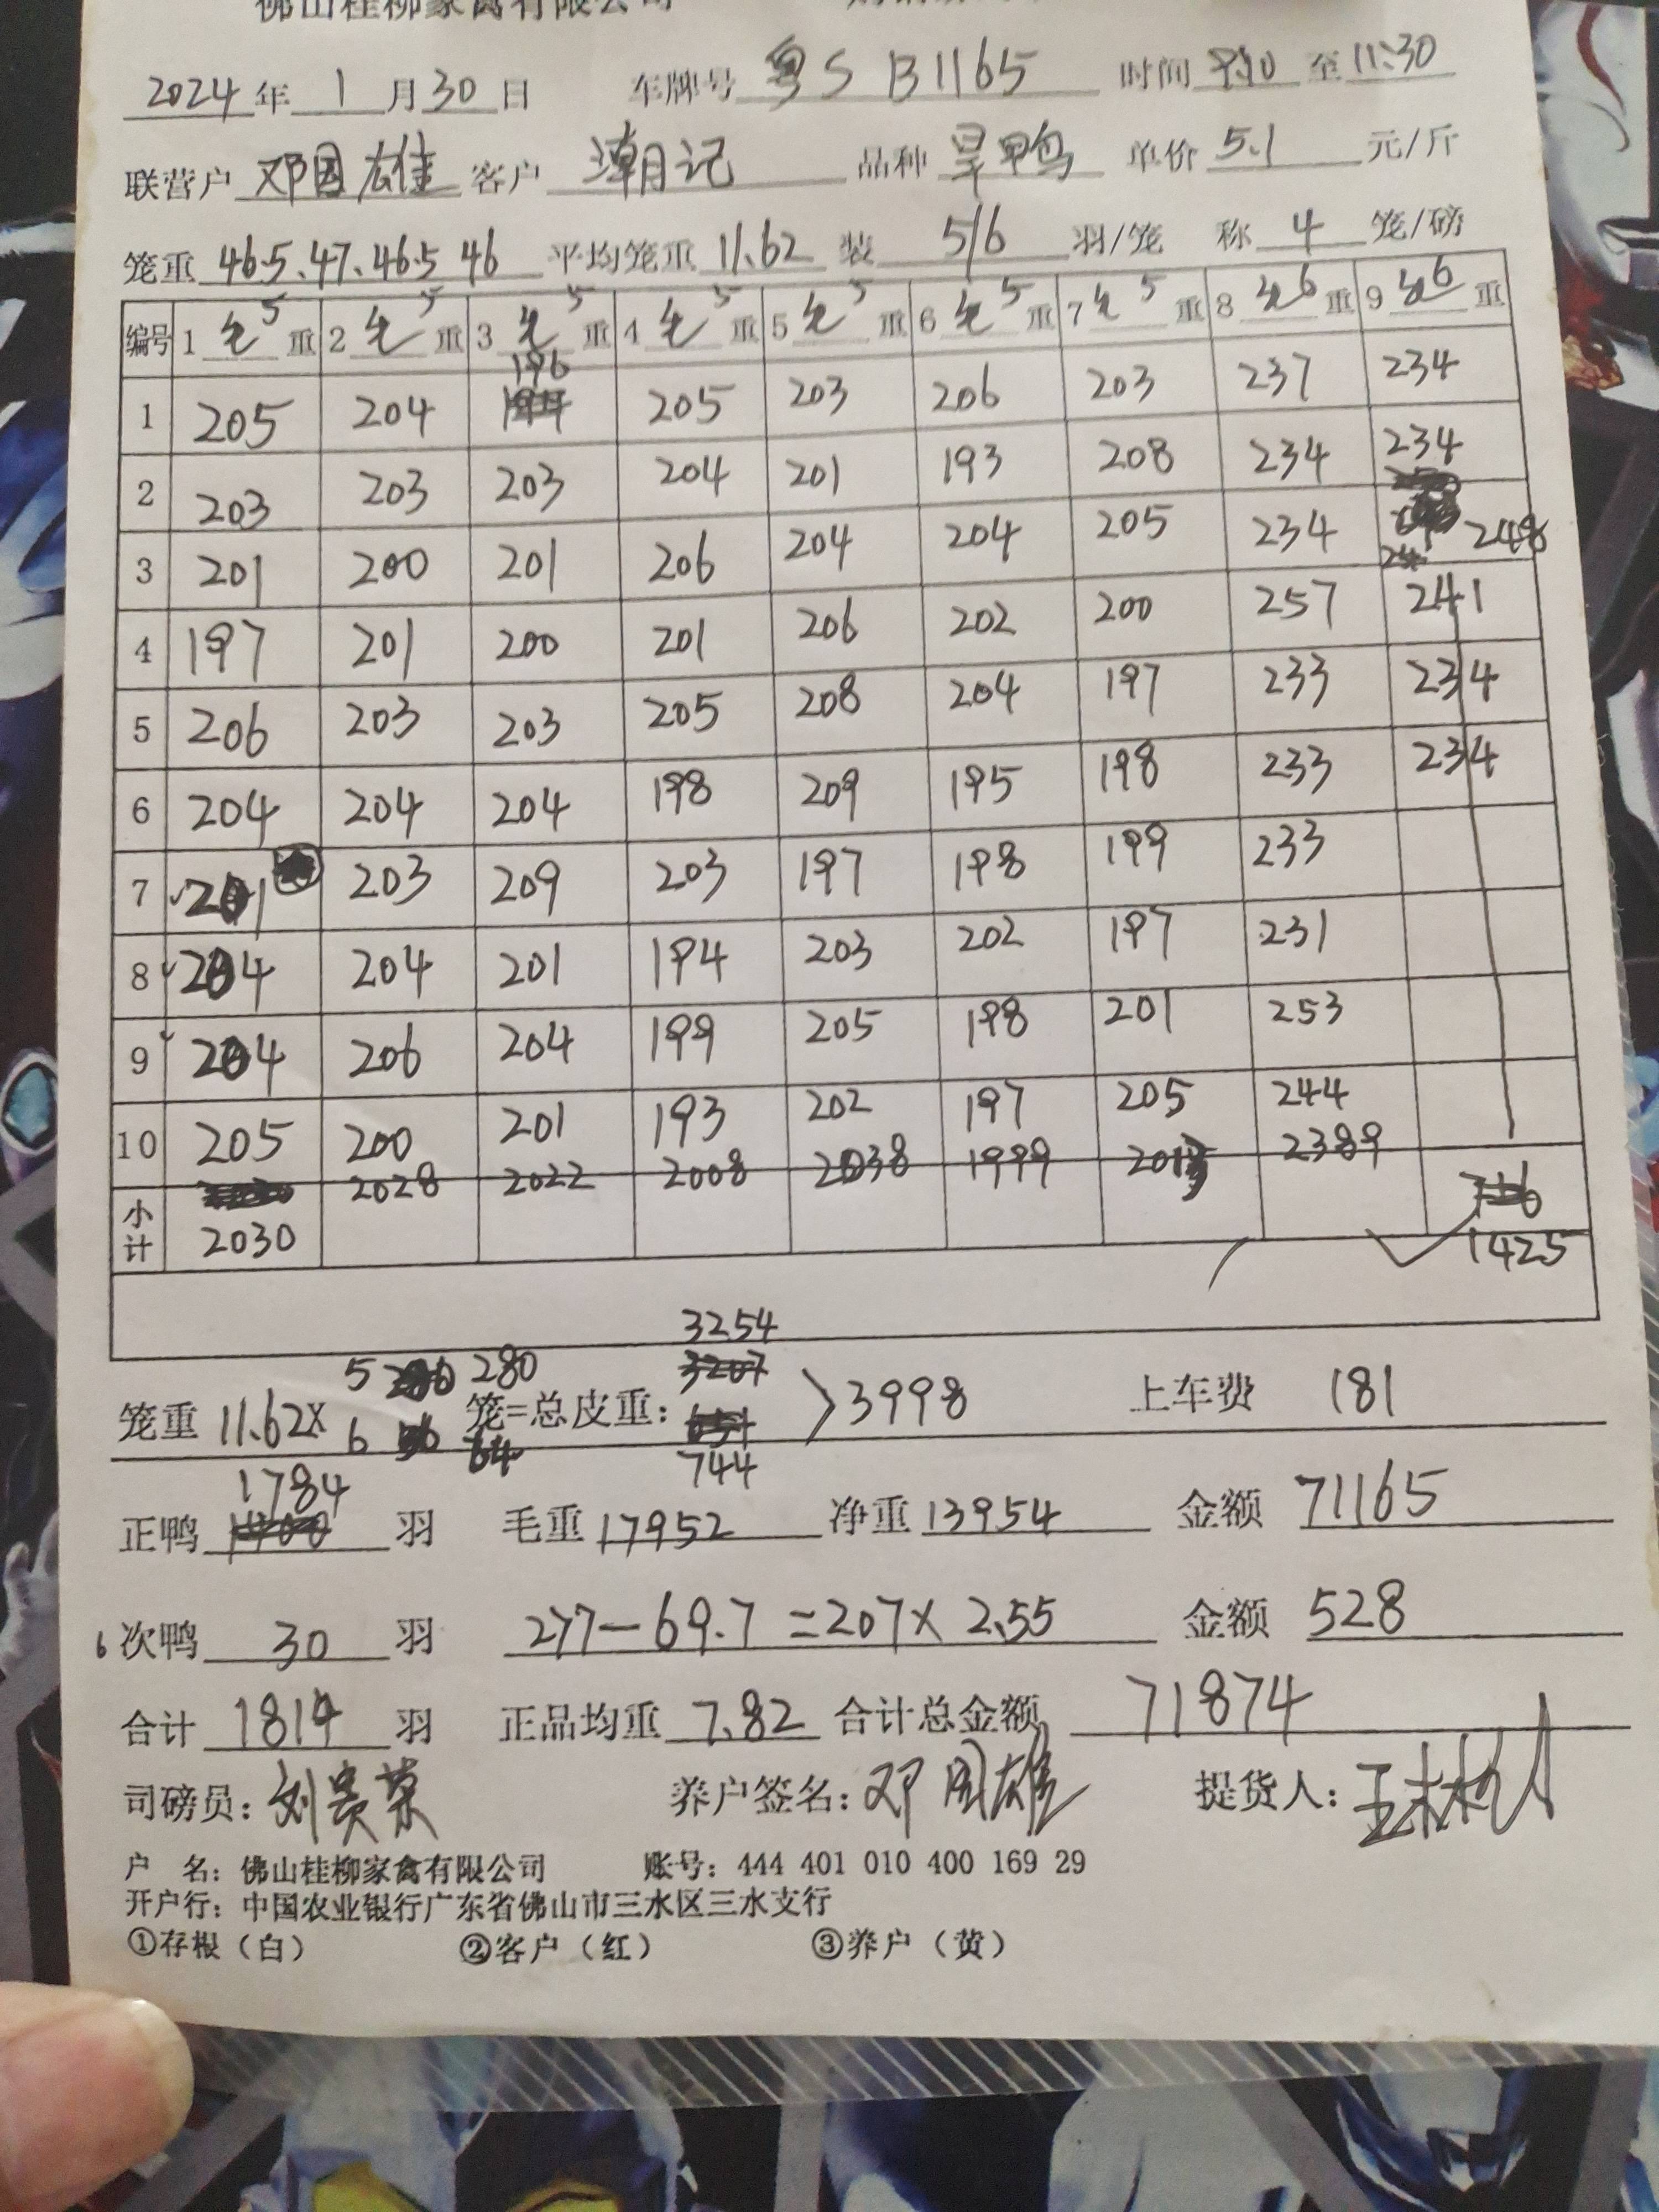 佛山桂柳家禽有限公司
2024年 1月30日 车牌号 粤S B1165 时间 9:10 至 11:30
联营户 邓国雄 客户 潮记 品种 旱鸭 单价 5.1 元/斤
笼重 46.5.47.46.5 46 平均笼重 11.62 装 5/6 羽/笼 称 4 笼/磅
编号 1 毛5 重 2 毛5 重 3 毛5 重 4 毛5 重 5 毛5 重 6 毛5 重 7 毛5 重 8 毛6 重 9 毛6 重
1 205 204 196 205 203 206 203 237 234
2 203 203 203 204 201 193 208 234 234
3 201 200 201 206 204 204 205 234 248
4 197 201 200 201 206 202 200 257 241
5 206 203 203 205 208 204 197 233 234
6 204 204 204 198 209 195 198 233 234
7 201 203 209 203 197 198 199 233
8 204 204 201 194 203 202 197 231
9 204 206 204 199 205 198 201 253
10 205 200 201 193 202 197 205 244
小计 2030 2028 2022 2008 2038 1999 2013 2389 1425
笼重 11.62× 5 280 6 64 笼=总皮重: 3254 744 3998 上车费 181
正鸭 1784 羽 毛重 17952 净重 13954 金额 71165
6 次鸭 30 羽 277-69.7=207×2.55 金额 528
合计 1814 羽 正品均重 7.82 合计总金额 71874
司磅员: 刘贵荣 养户签名: 邓国雄 提货人:
户 名: 佛山桂柳家禽有限公司 账号: 444 401 010 400 169 29
开户行: 中国农业银行广东省佛山市三水区三水支行
①存根(白) ②客户(红) ③养户(黄)